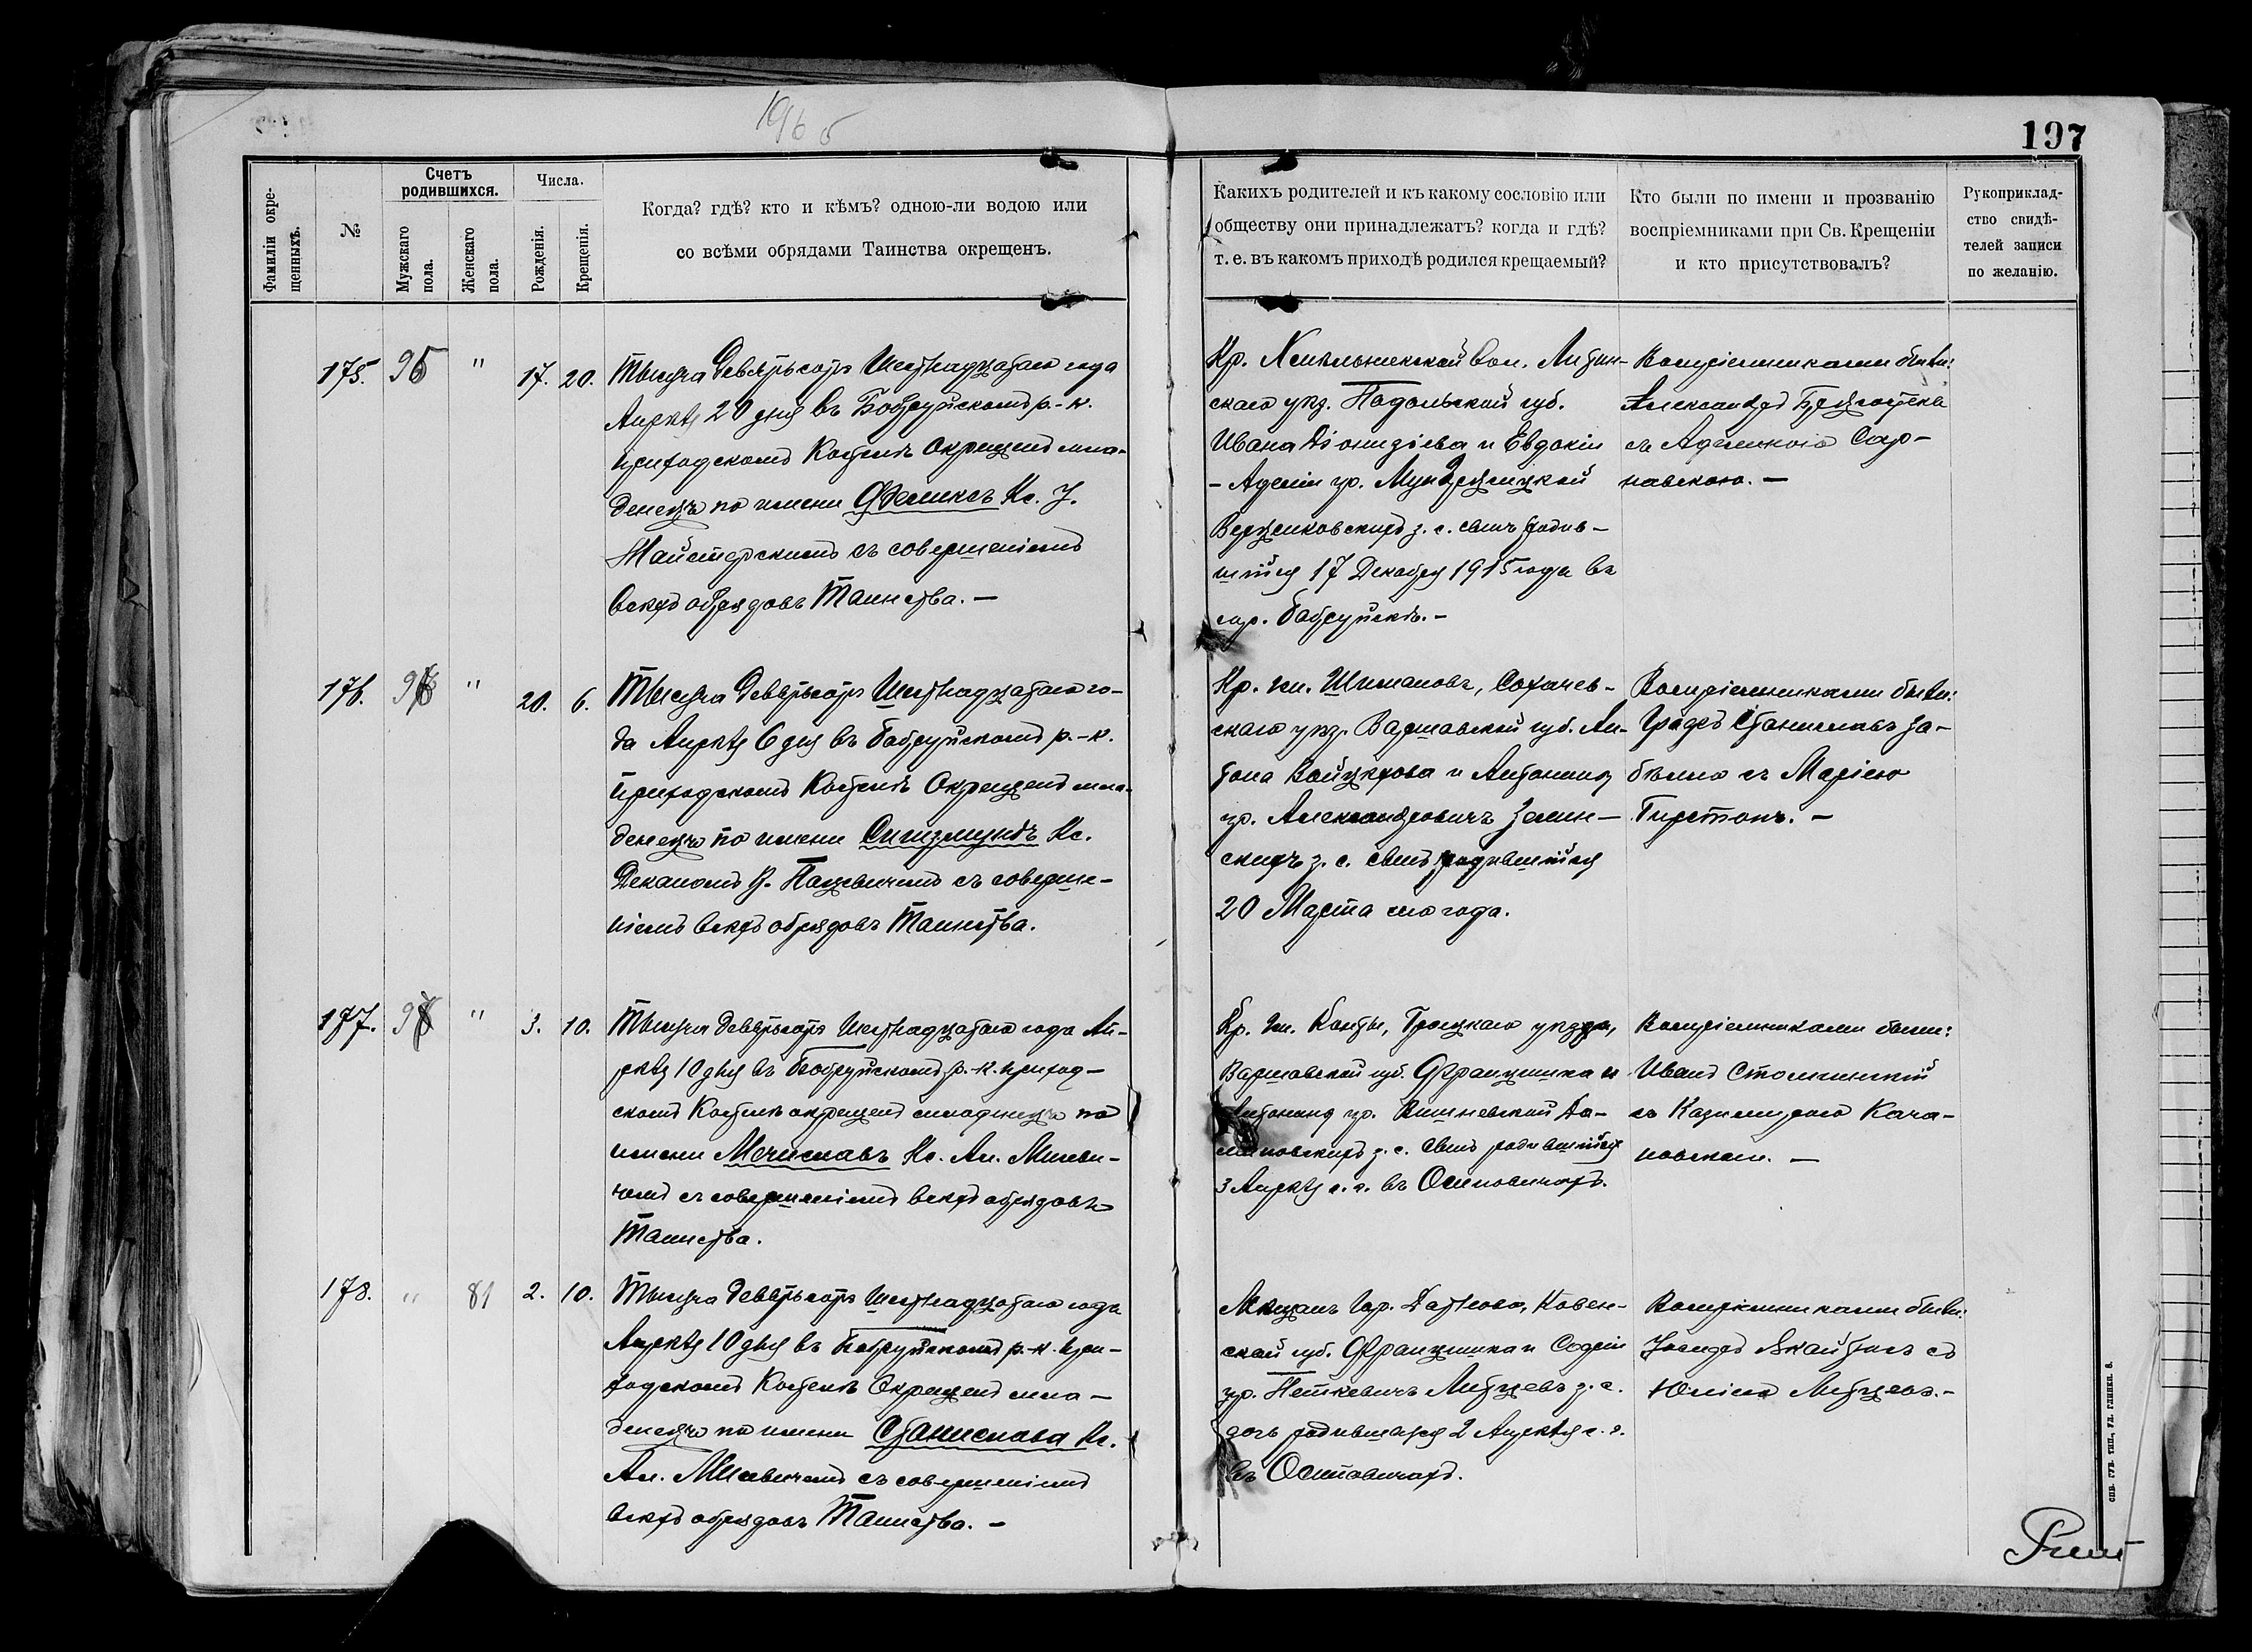 197
Фамиліи окре-
щенныхъ.
№
Счетъ
родившихся.
Мужскаго
пола.
Женскаго
пола.
Числа.
Рожденія.
Крещенія.
Когда? гдѣ? кто и кѣмъ? одною-ли водою или
со всѣми обрядами Таинства окрещенъ.
Какихъ родителей и къ какому сословію или
обществу они принадлежатъ? когда и гдѣ?
т. е. въ какомъ приходѣ родился крещаемый?
Кто были по имени и прозванію
воспріемниками при Св. Крещеніи
и кто присутствовалъ?
Рукоприклад-
ство свидѣ-
телей записи
по желанію.
175. 95 " 17. 20.
Тысяча девятьсотъ Шестнадцатаго года
Апрѣля 20 дня въ Бобруйскомъ р.-к.
приходскомъ Костелѣ Окрещенъ мла-
денецъ по имени Феликсъ Кс. У.
Майстерскимъ съ совершеніемъ
всѣхъ обрядовъ Таинства. —
Кр. Хмѣльникской вол. Литин-
скаго уѣз. Подольской губ.
Ивана Діонизіева и Евдокіи
- Аделіи ур.
з. с. сынъ родив-
шійся 17 Декабря 1915 года въ
гор. Бобруйскѣ. -
Воспріемниками были:
Александръ
съ Аделиною Сар-
навскою. —
176. " 20. 6.
Тысяча девятьсотъ Шестнадцатаго го-
да Апрѣля 6 дня въ Бобруйскомъ р.-к.
приходскомъ Костелѣ Окрещенъ мла-
денецъ по имени Сигизмундъ Кс.
Деканомъ Пацевичемъ съ соверше-
ніемъ всѣхъ обрядовъ Таинства.
Кр. гм. Шимановъ, Сохачев-
скаго уѣз. Варшавской губ. Ан-
тона и Антонины
ур. Александровичъ Земин-
скихъ з. с. сынъ родившійся
20 Марта сего года.
Воспріемниками были:
Графъ Станиславъ За-
бѣлло съ Маріею
Гирстонъ. —
177. " 3. 10.
Тысяча девятьсотъ Шестнадцатаго года Ап-
рѣля 10 дня въ Бобруйскомъ р.-к. приход-
скомъ Костелѣ окрещенъ младенецъ по
имени Мечиславъ Кс. Ал. Милеви-
чемъ съ совершеніемъ всѣхъ обрядовъ
Таинства.
Кр. гм. Конты, Гроецкаго уѣзда,
Варшавской губ. Францишка и
Антонины ур. Вишневской
з. с. сынъ родившійся
3 Апрѣля с. г. въ Осиповичахъ.
Воспріемниками были:
Иванъ
съ Казимирою Кача-
новскою. —
178. " 81 2. 10.
Тысяча девятьсотъ Шестнадцатаго года
Апрѣля 10 дня въ Бобруйскомъ р.-к. при-
ходскомъ Костелѣ Окрещенъ мла-
денецъ по имени Станислава Кс.
Ал. Милевичемъ съ совершеніемъ
всѣхъ обрядовъ Таинства. —
Мѣщанъ гор. Датнова, Ковен-
ской губ. Францишка и Софіи
ур. Неткевичъ з. с.
дочь родившаяся 2 Апрѣля с. г.
въ Осиповичахъ.
Воспріемниками были:
Іосифъ съ
Юліею
СПБ. ГУБ. ТИП., УЛ. ГЛИНКИ. 8.